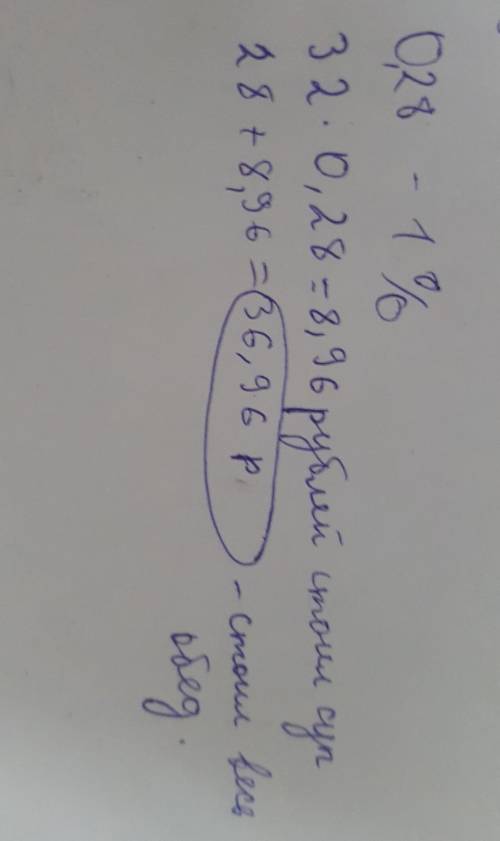 0,28 - 1%
32 · 0,28 = 8,96 рублей стоил суп
28 + 8,96 = 36,96 р. - стоил весь
обед.